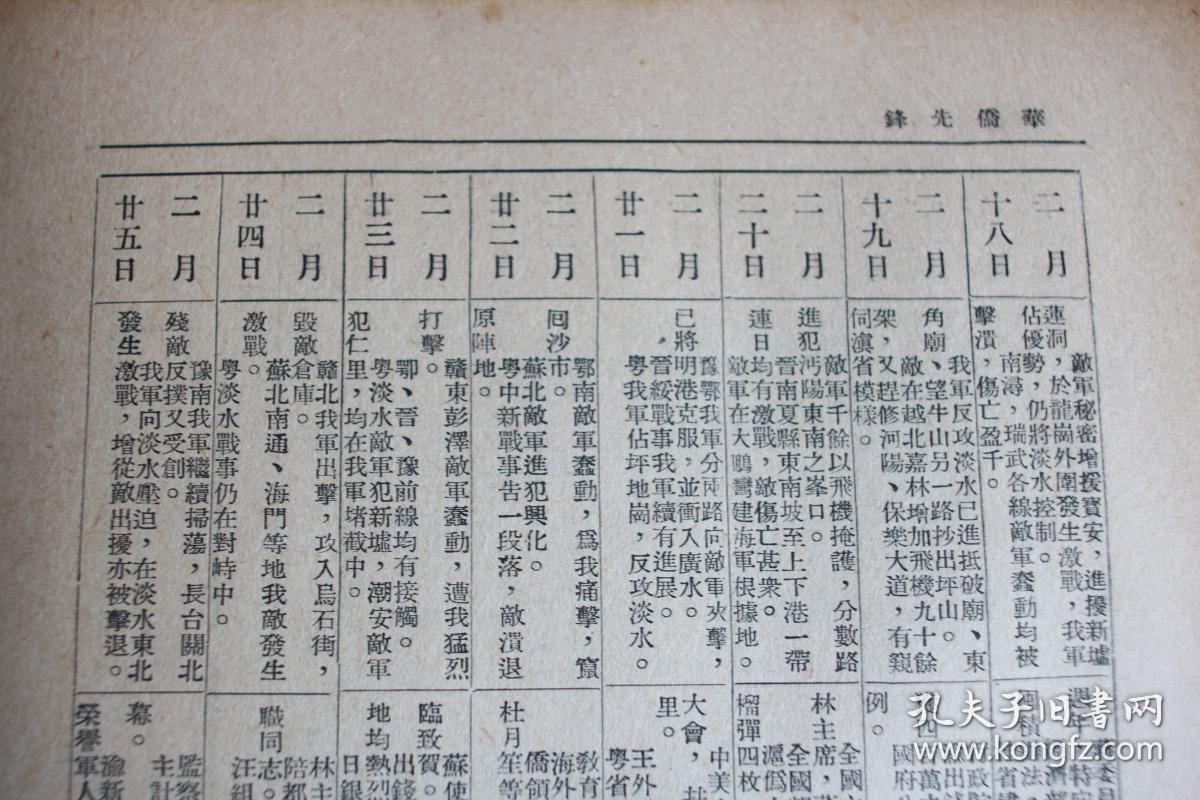 華僑先鋒
二月
十八日
敵軍秘密增援寶安，進擾新墟
蓮洞，於龍崗外圍發生激戰，我軍
佔優勢，仍將淡水控制。
南潯，瑞武各線敵軍蠢動均被
擊潰，傷亡盈千。
二月
十九日
我軍反攻淡水已進抵破廟、東
角廟、望牛山另一路抄出坪山。
敵在越北嘉林增加飛機九十餘
架，又趕修河陽、保樂大道，有窺
伺滇省模樣。
二月
二十日
敵軍千餘以飛機掩護，分數路
進犯沔陽東南之峯口。
晉南夏縣東南坡至上下港一帶
均有激戰，敵傷亡甚衆。
連日敵軍在大鵬彎建海軍根據地。
二月
廿一日
豫鄂我軍分兩路向敵軍夾擊，
已將明港克服，並衝入廣水。
晉綏戰事我軍續有進展。
粵我軍佔坪地崗，反攻淡水。
二月
廿二日
鄂南敵軍蠢動，爲我痛擊，竄
回沙市。
蘇北敵軍進犯興化。
粵中新戰事告一段落，敵潰退
原陣地。
二月
廿三日
贛東彭澤敵軍蠢動，遭我猛烈
打擊
鄂、晉、豫前線均有接觸。
粵淡水敵軍犯新墟，潮安敵軍
犯仁里，均在我軍堵截中。
二月
廿四日
贛北我軍出擊，攻入烏石街，
毀敵倉庫。
蘇北南通、海門等地我敵發生
激戰。
粵淡水戰事仍在對峙中。
二月
廿五日
豫南我軍繼續掃蕩，長台關北
殘敵反撲又受創。
我軍向淡水壓迫，在淡水東北
發生激戰，增從敵出擾亦被擊退。
國府公
例。
全國
林主席，
全國
滬僞
榴彈四枚
中美
大會，
里。
王外
粵省
教育
海外
杜月笙等
蘇使
臨致賀。
出錢
地均熱烈
日銀
林主
陪都
職同志。
汪組
監察
主計
幕。
渝新
榮譽軍人
孔夫子旧書网
www.kongfz.com